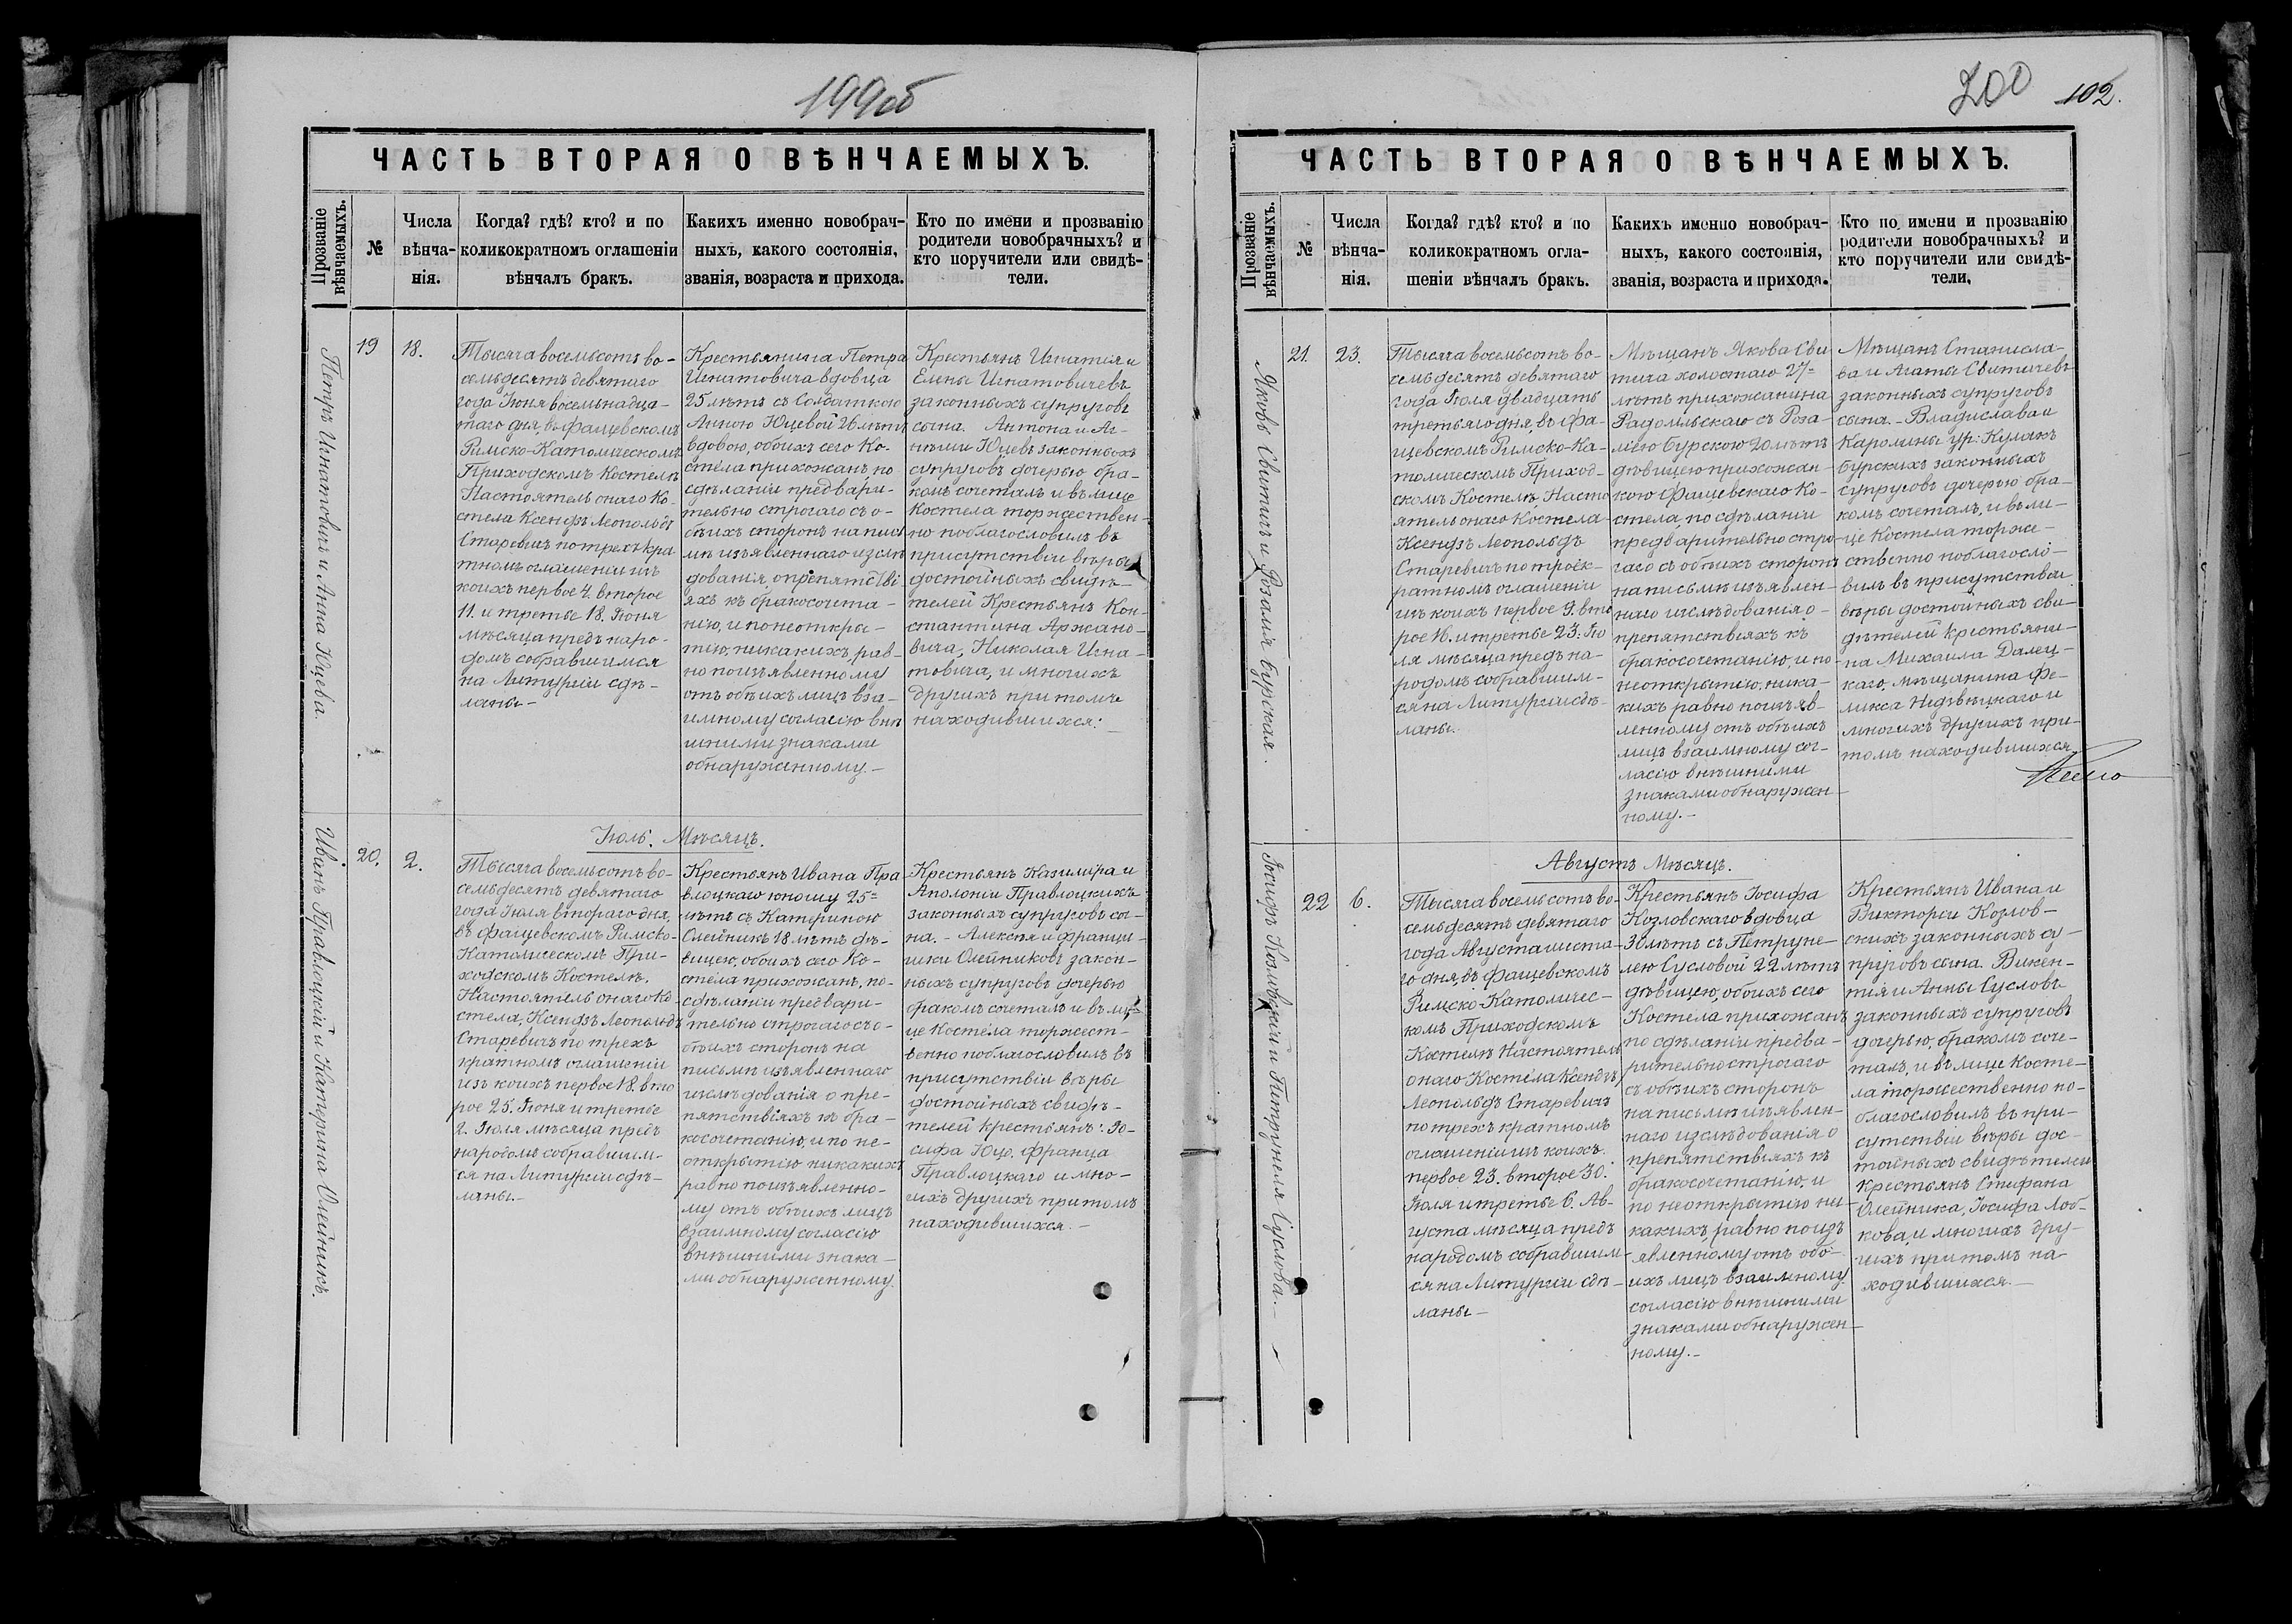 199об
ЧАСТЬ ВТОРАЯ О ВѢНЧАЕМЫХЪ.
Прозваніе
вѣнчаемыхъ.
№
Числа
вѣнча-
нія.
Когда? гдѣ? кто? и по
коликократномъ оглашеніи
вѣнчалъ бракъ.
Какихъ именно новобрач-
ныхъ, какого состоянія,
званія, возраста и прихода.
Кто по имени и прозванію
родители новобрачныхъ? и
кто поручители или свидѣ-
тели.
Петръ Игнатовичъ и Анна Юцева.
19
18.
Тысяча восемьсотъ во-
семьдесятъ девятаго
года Іюня восемьнадца-
таго дня, въ Фащевскомъ
Римско-Католическомъ
Приходскомъ Костелѣ
Настоятель онаго Ко-
стела Ксендзъ Леопольдъ
Старевичъ по трехъ кра
тномъ оглашеніи изъ
коихъ первое 4. второе
11. и третье 18. Іюня
мѣсяца предъ наро-
домъ собравшимся
на Литургіи сдѣ-
ланы-
Крестьянина Петра
Игнатовича вдовца
25 лѣтъ съ Солдаткою
Анною Юцевой 26 лѣтъ
вдовою, обоихъ сего Ко-
стела прихожанъ, по
сдѣланіи предвари-
тельно строгаго съ о-
бѣихъ сторонъ на пись
мѣ изъявленнаго изслѣ
дованія, о препятстві
яхъ къ бракосочета-
нію, и по неоткры-
тію никакихъ, рав-
но по изъявленному
отъ обѣихъ лицъ вза-
имному согласію внѣ
шними знаками
обнаруженному.-
Крестьянъ Игнатія и
Елены Игнатовичевъ
законныхъ супруговъ
сына. Антона и Аг-
нѣши Юцевъ законныхъ
супруговъ дочерью бра-
комъ сочеталъ и въ лице
Костела торжествен-
но поблагословилъ въ
присутствіи вѣры
достойныхъ свидѣ-
телей Крестьянъ Кон-
стантина Аржано-
вича, Николая Игна-
товича, и многихъ
другихъ при томъ
находившихся.-
Іюль. Мѣсяцъ.
Иванъ Правлоцкій и Катерина Олейникъ.
20.
2.
Тысяча восемьсотъ во-
семьдесятъ девятаго
года Іюля втораго дня,
въ Фащевскомъ Римско-
Католическомъ При-
ходскомъ Костелѣ.
Настоятель онаго Ко-
стела, Ксендзъ Леопольдъ
Старевичъ по трехъ
кратномъ оглашеніи
изъ коихъ первое 18. вто
рое 25. Іюня и третье
2. Іюля мѣсяца предъ
народомъ собравшим-
ся на Литургіи сдѣ-
ланы.-
Крестьянъ Ивана Пра
влоцкаго юношу 25=
лѣтъ съ Катериною
Олейникъ 18 лѣтъ дѣ-
вицею, обоихъ сего Ко-
стела прихожанъ, по-
сдѣланіи предвари-
тельно строгаго съ о-
бѣихъ сторонъ на
письмѣ изъявленнаго
изслѣдованія о пре-
пятствіяхъ къ бра-
косочетанію, и по не-
открытію никакихъ
равно по изъявленно-
му отъ обѣихъ лицъ
взаимному согласію
внѣшними знака-
ми обнаруженному.
Крестьянъ Казиміра и
Аполоніи Правлоцкихъ
законныхъ супруговъ сы-
на. - Алексѣя и Францы-
шки Олейниковъ закон-
ныхъ супруговъ дочерью
бракомъ сочеталъ и въ ли-
це Костела торжест-
венно поблагословилъ въ
присутствіи вѣры
достойныхъ свидѣ-
телей крестьянъ: Іо-
сифа Юцо, Франца
Правлоцкаго и мно-
гихъ другихъ при томъ
находившихся.-
200
102.
ЧАСТЬ ВТОРАЯ О ВѢНЧАЕМЫХЪ.
Прозваніе
вѣнчаемыхъ.
№
Числа
вѣнча-
нія.
Когда? гдѣ? кто? и по
коликократномъ огла-
шеніи вѣнчалъ бракъ.
Какихъ именно новобрач-
ныхъ, какого состоянія,
званія, возраста и прихода.
Кто по имени и прозванію
родители новобрачныхъ? и
кто поручители или свидѣ-
тели.
Яковъ Свитичъ и Розалія Бурская.
21.
23.
Тысяча восемьсотъ во-
семьдесятъ девятаго
года Іюля двадцать
третьяго дня, въ Фа-
щевскомъ Римско-Ка-
толическомъ Приход-
скомъ Костелѣ Насто
ятель онаго Костела
Ксендзъ Леопольдъ
Старевичъ по троек-
ратномъ оглашеніи
изъ коихъ первое 9. вто
рое 16. и третье 23. Ію
ля мѣсяца предъ на-
родомъ собравшим-
ся на Литургіи сдѣ-
ланы.
Мѣщанъ Якова Сви
тича холостаго 27=
лѣтъ прихожанина
Радомльскаго съ Роза-
ліею Бурскою 20 лѣтъ
дѣвицею прихожан-
кою Фащевскаго Ко-
стела, по сдѣланіи
предварительно стро-
гаго съ обѣихъ сторонъ
на письмѣ изъявлен-
наго изслѣдованія о-
препятствіяхъ къ
бракосочетанію, и по
неоткрытію, ника-
кихъ равно по изъяв-
ленному отъ обѣихъ
лицъ взаимному сог-
ласію внѣшними
знаками обнаружен-
ному.-
Мѣщанъ Станисла-
ва и Агаты Свитичевъ
законныхъ супруговъ
сына. - Владислава и
Каролины ур: Кулакъ
Бурскихъ законныхъ
супруговъ дочерью бра-
комъ сочеталъ, и въ ли-
це Костела торже-
ственно поблагосло-
вилъ въ присутствіи
вѣры достойныхъ сви-
дѣтелей крестьяни-
на Михаила Далец-
каго, мѣщанина Фе-
ликса Недзвѣцкаго и
многихъ другихъ при-
томъ находившихся
Августъ Мѣсяцъ.
Іосифъ Козловскій и Петрунеля Суслова.-
22
6.
Тысяча восемьсотъ во-
семьдесятъ девятаго
года Августа шеста-
го дня, въ Фащевскомъ
Римско-Католичес-
комъ Приходскомъ
Костелѣ Настоятель
онаго Костела Ксендзъ
Леопольдъ Старевичъ
по трехъ кратномъ
оглашеніи изъ коихъ
первое 23. второе 30.
Іюля и третье 6. Ав-
густа мѣсяца предъ
народомъ собравшим-
ся на Литургіи сдѣ-
ланы-
Крестьянъ Іосифа
Козловскаго вдовца
30 лѣтъ съ Петруне-
лею Сусловой 22 лѣтъ
дѣвицею, обоихъ сего
Костела прихожанъ
по сдѣланіи предва-
рительно строгаго
съ обѣихъ сторонъ
на письмѣ изъявлен-
наго изслѣдованія о
препятствіяхъ къ
бракосочетанію, и
по неоткрытію ни-
какихъ, равно по изъ
явленному отъ обо-
ихъ лицъ взаимному
согласію внѣшними
знаками обнаружен-
ному.-
Крестьянъ Ивана и
Викторіи Козлов-
скихъ законныхъ су-
пруговъ сына. Викен-
тія и Анны Сусловъ
законныхъ супруговъ
дочерью, бракомъ соче-
талъ, и въ лице Косте-
ла торжественно по-
благословилъ въ при-
сутствіи вѣры дос-
тойныхъ свидѣтелей
крестьянъ Стифана
Олейника, Іосифа Лоб-
кова, и многихъ дру-
гихъ притомъ на-
ходившихся.-